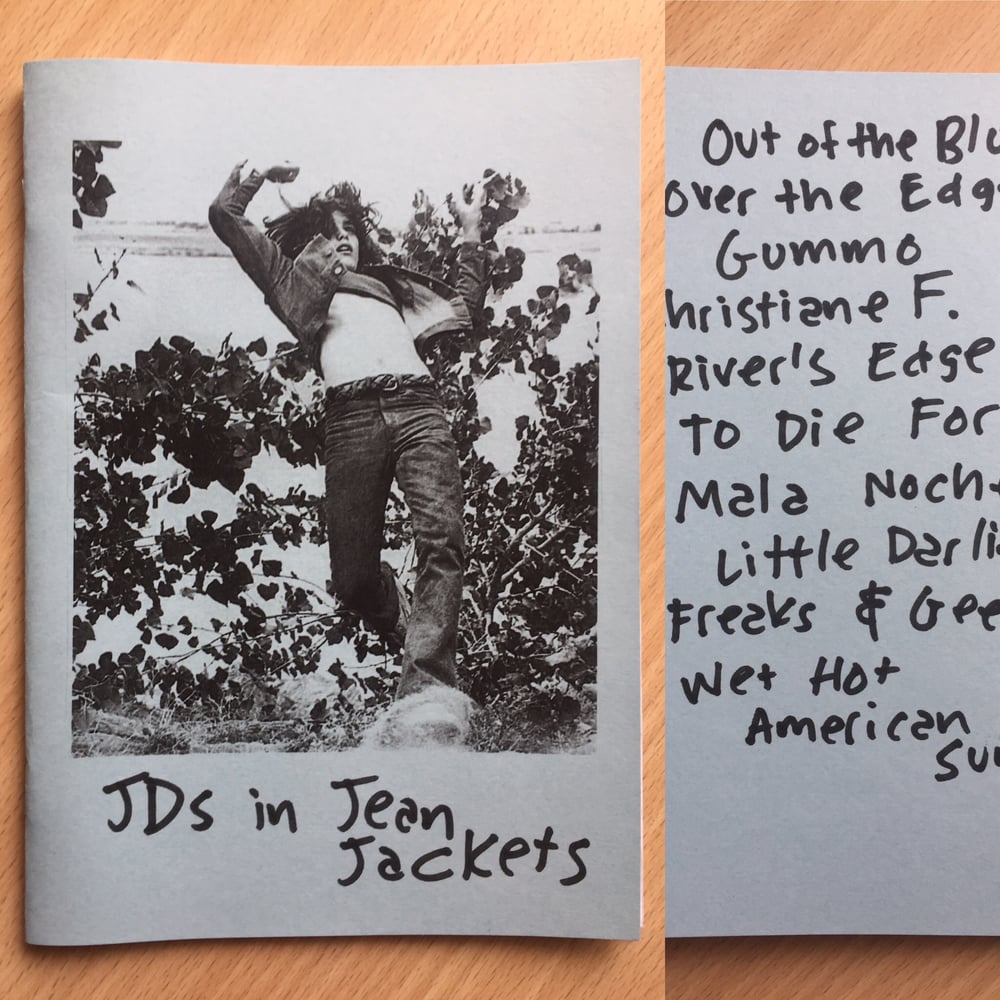 JDs in Jean
Jackets
Out of the Blu
Over the Edg
Gummo
hristiane F.
River's Edge
To Die For
Mala Noch
Little Darli
Freaks & Gee
Wet Hot
American
Su